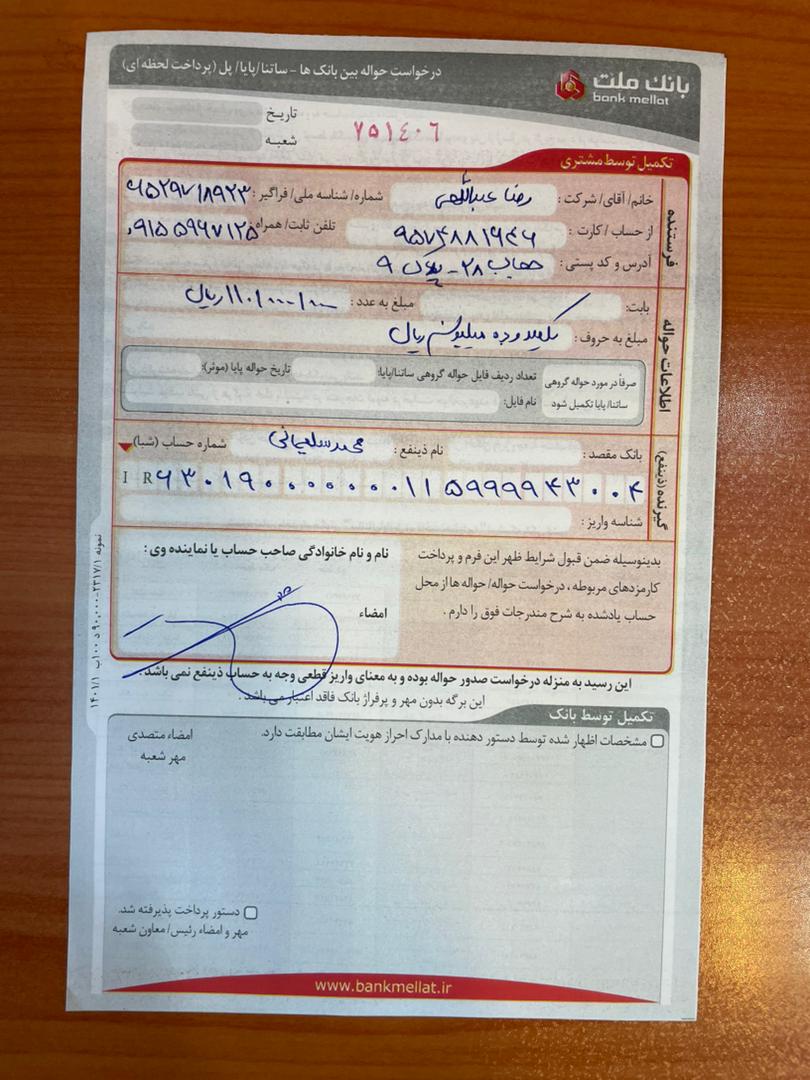 درخواست حواله بین بانک ها - ساتنا/پایا/ پل (پرداخت لحظه ای)
بانک ملت
bank mellat
تاریخ
شعبه
۷۵۱۴۰۶
تکمیل توسط مشتری
فرستنده
خانم/ آقای/ شرکت : رضا عبداللهی شماره/ شناسه ملی/ فراگیر : ۶۵۲۹۷۱۸۹۲۳
از حساب/ کارت : ۹۵۷۴۸۸۱۶۴۶ تلفن ثابت/ همراه : ۰۹۱۵۵۹۶۷۱۲۵
آدرس و کد پستی : ۲۸ - پلاک ۹
اطلاعات حواله
بابت: مبلغ به عدد : ۱۱۰/۰۰۰/۰۰۰ ریال
مبلغ به حروف : یکصد و ده میلیون ریال
صرفاً در مورد حواله گروهی ساتنا/ پایا تکمیل شود
تعداد ردیف فایل حواله گروهی ساتنا/پایا: تاریخ حواله پایا (موثر):
نام فایل:
گیرنده (ذینفع)
بانک مقصد : نام ذینفع : محمد سلیمانی شماره حساب (شبا)
I R ۶۳۰۱۹۰۰۰۰۰۰۰۰۱۱۵۹۹۹۹۴۳۰۰۴
شناسه واریز :
بدینوسیله ضمن قبول شرایط ظهر این فرم و پرداخت
کارمزدهای مربوطه ، درخواست حواله/ حواله ها از محل
حساب یادشده به شرح مندرجات فوق را دارم .
نام و نام خانوادگی صاحب حساب یا نماینده وی :
امضاء
این رسید به منزله درخواست صدور حواله بوده و به معنای واریز قطعی وجه به حساب ذینفع نمی باشد .
این برگه بدون مهر و پرفراژ بانک فاقد اعتبار می باشد .
تکمیل توسط بانک
مشخصات اظهار شده توسط دستور دهنده با مدارک احراز هویت ایشان مطابقت دارد.
امضاء متصدی
مهر شعبه
دستور پرداخت پذیرفته شد.
مهر و امضاء رئیس/ معاون شعبه
www.bankmellat.ir
نمونه ۲۳۱۷/۱-۹۰,۰۰۰ د ۱۰۰ ب ۱۴۰۱/۱